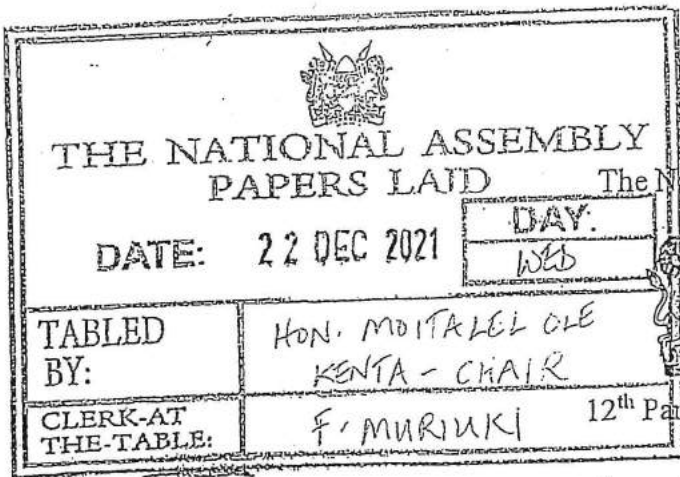 THE NATIONAL ASSEMBLY
PAPERS LAID
The N
DATE: 22 DEC 2021
DAY:
WED
TABLED BY:
HON. MOITALEL OLE
KENTA - CHAIR
CLERK-AT THE-TABLE:
F. MURIUKI
12th Par